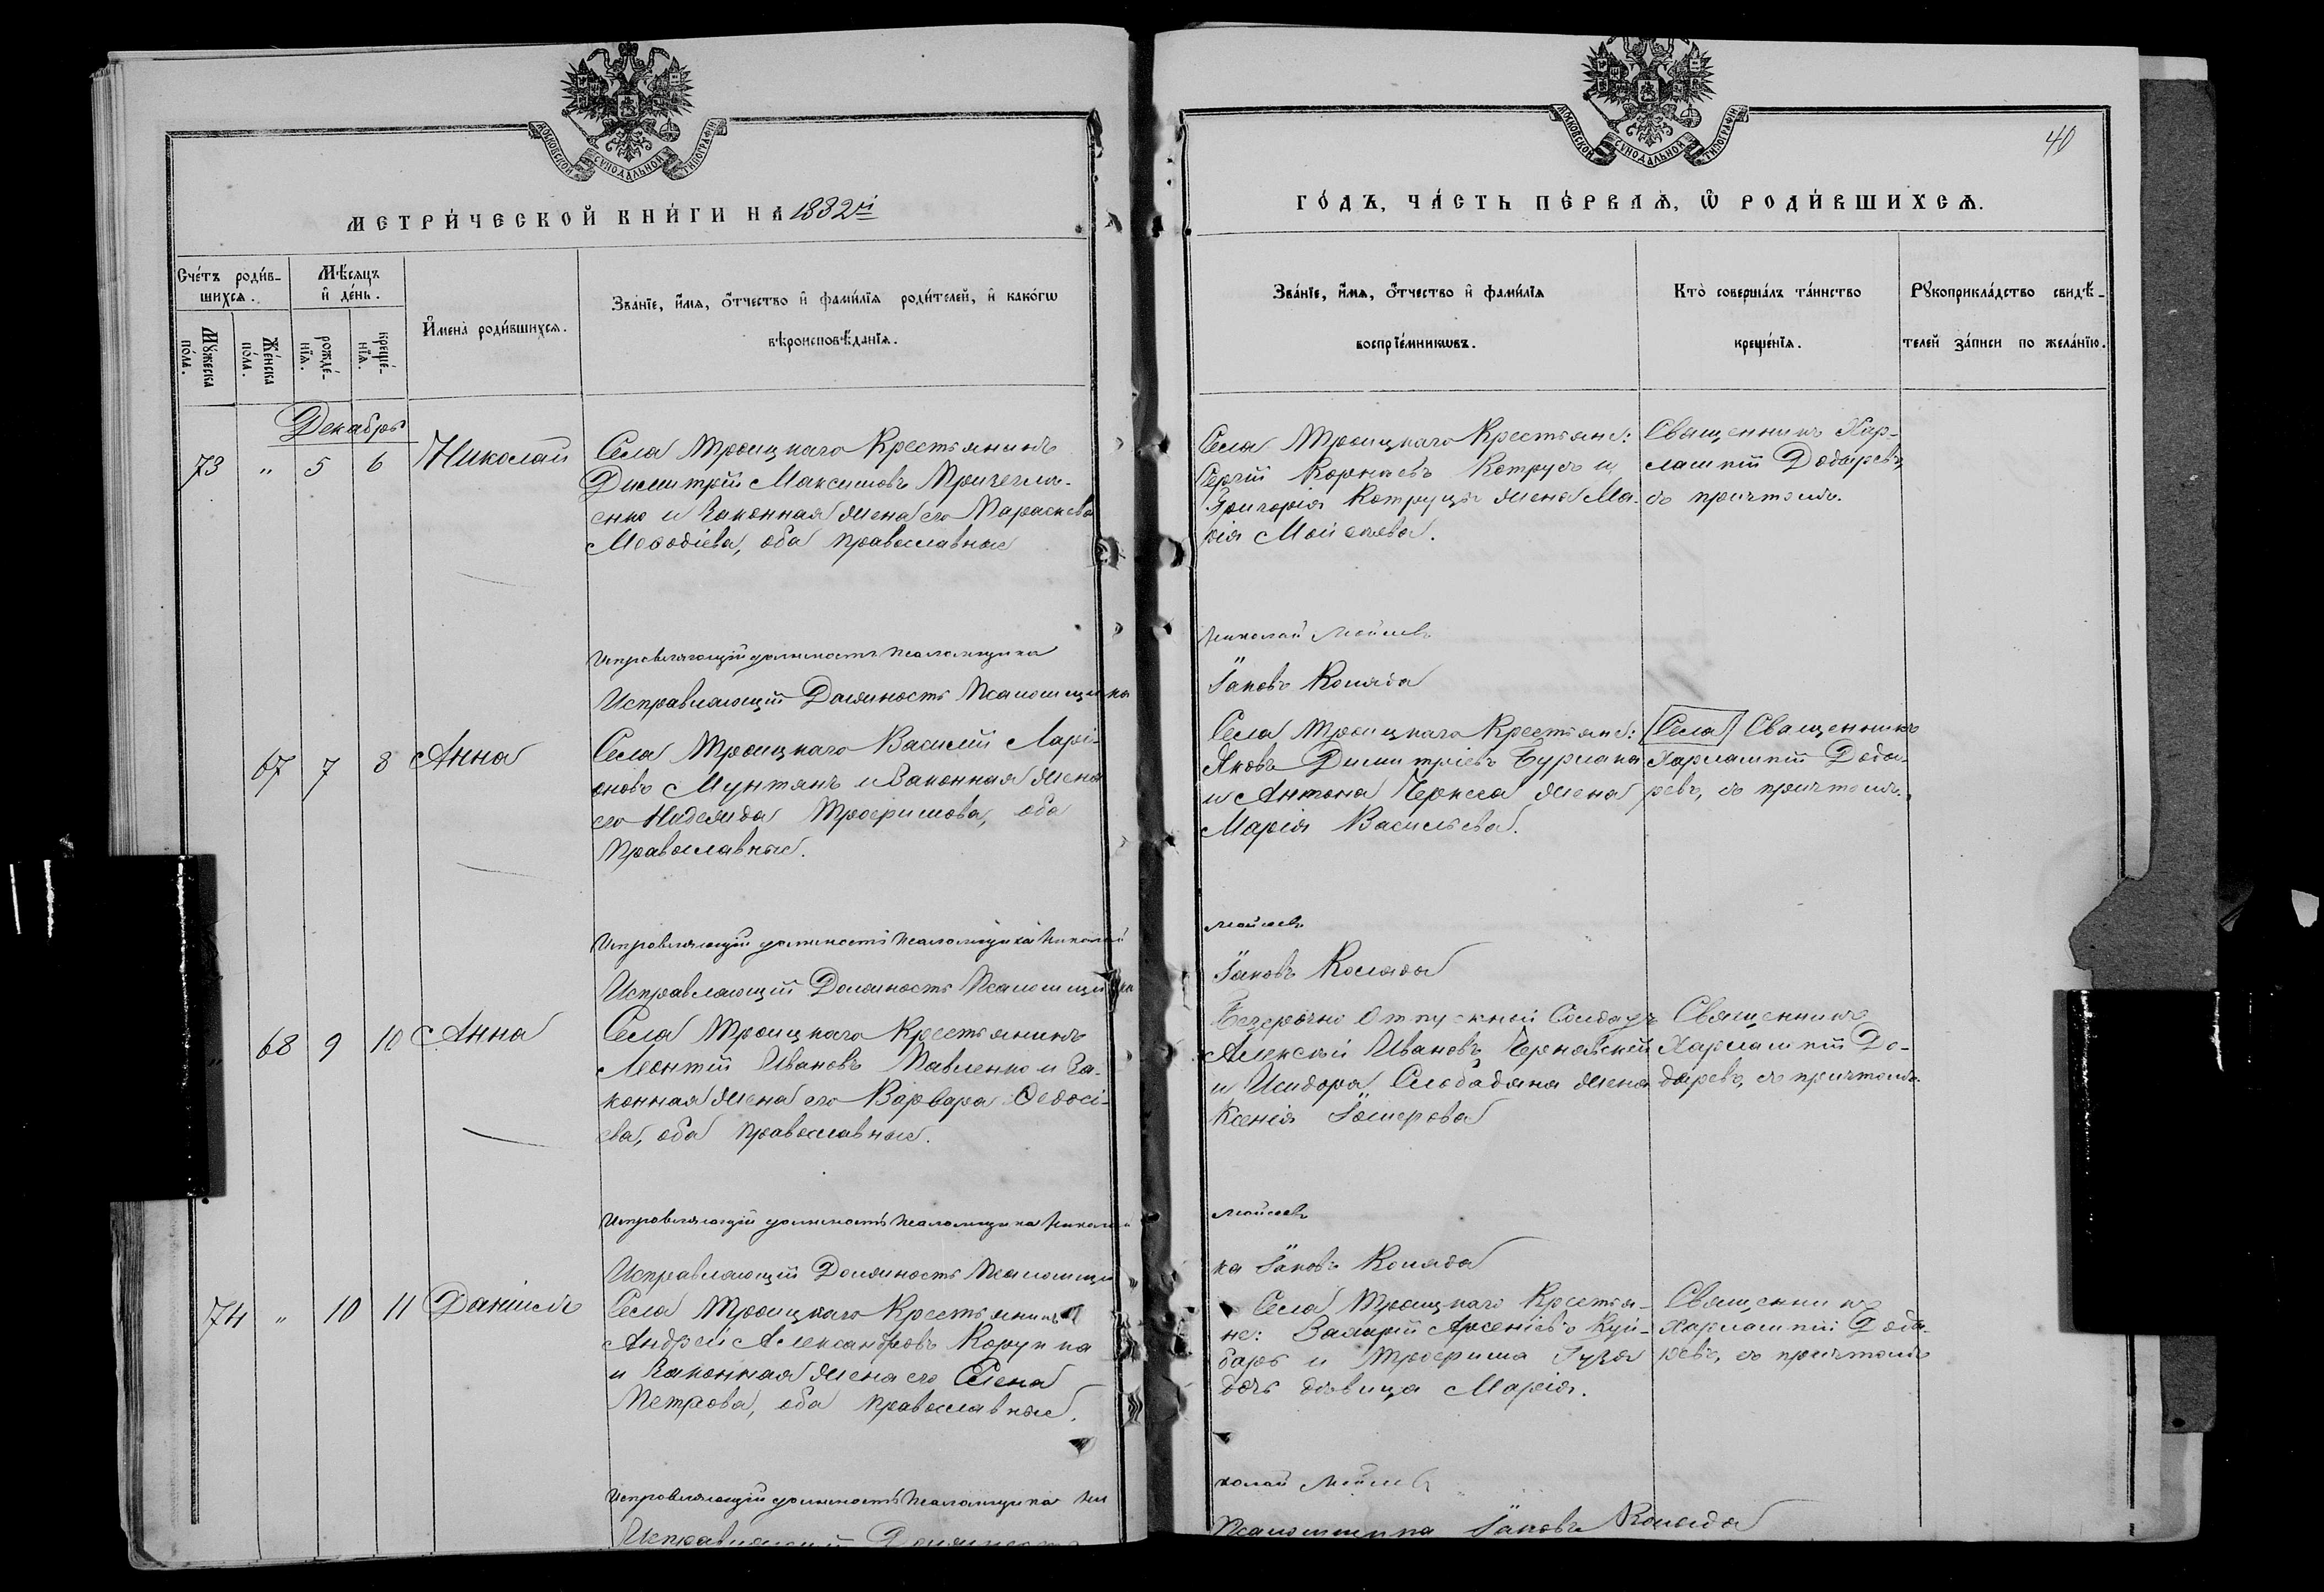 МОСКОВСКОЙ СУНОДАЛЬНОЙ ТИПОГРАФІИ
МЕТРИ́ЧЕСКОЙ КНИ́ГИ НА 1882й
Сче́тъ роди́в-
шихсѧ.
Мѣ́сѧцъ
и҆ де́нь.
Мꙋ́жеска
по́ла.
Же́нска
по́ла.
рожде́-
нїѧ.
креще́-
нїѧ.
И҆мена̀ роди́вшихсѧ.
Зва́нїе, и҆́мѧ, ѻ҆́тчество и҆ фами́лїѧ роди́телей, и҆ како́гѡ
вѣроисповѣ́данїѧ.
Декабрь
73 " 5 6 Николай
Села Троицкаго Крестьянинъ
Димитрій Максимовъ
енко и Законная жена его Параскева
Меѳодіева, оба православные
Исправляющій должность псаломщика
Исправляющій Должность Псаломщика
67 7 8 Анна
Села Троицкаго Василій Ларі-
оновъ Мунтянъ и Законная жена
его Надежда Трофимова, оба
Православные.
Исправляющій должность псаломщика Николай
Исправляющій Должность Псаломщика
" 68 9 10 Анна
Села Троицкаго Крестьянинъ
Леонтій Ивановъ Павленко и За-
конная жена его Варвара Ѳедосі-
ева, оба православные.
Исправляющій должность псаломщика Николай
Исправляющій Должность Псаломщи
74 " 10 11 Даніилъ
Села Троицкаго Крестьянинъ
Андрей Александровъ Корупка
и Законная жена его Елена
Петрова, оба православные.
Исправляющій должность псаломщика Ни
Исправляющій Должность
МОСКОВСКОЙ СУНОДАЛЬНОЙ ТИПОГРАФІИ
40
ГО́ДЪ, ЧА́СТЬ ПЕ́РВАѦ, Ѡ҆ РОДИ́ВШИХСѦ.
Зва́нїе, и҆́мѧ, ѻ҆́тчество и҆ фами́лїѧ
воспрїе́мникѡвъ.
Кто̀ соверша́лъ та́инство
креще́нїѧ.
Рꙋкоприкла́дство свидѣ́-
телей за́писи по жела́нїю.
Села Троицкаго Крестьяне:
Сергій Корнѣевъ Котруцъ и
Григорія Котруца жена Ма-
рія Моисеева.
Священникъ Хар-
лампій Додыревъ,
съ причтомъ.
Николай Мойсеев
Іаковъ Коляда
Села Троицкаго Крестьяне:
Яковъ Димитріевъ Бурлака
и Антона Черкеса жена
Марія Васильева.
Села Священникъ
Харлампій Доды-
ревъ, съ причтомъ.
Мойсеев
Іаковъ Коляда
Безсрочно Отпускной Солдатъ
Алексѣй Ивановъ Чернявскій
и Исидора Слободяна жена
Ксенія
Священникъ
Харлампій До-
дыревъ, съ причтомъ.
Мойсеев
ка Іаковъ Коляда
Села Троицкаго Крестья-
не: Валерій Арсеніевъ Куй-
баръ и Трофима Гуза
дочь дѣвица Марія.
Священникъ
Харлампій Доды-
ревъ, съ причтомъ
колай Мойсеев
Псаломщика Іаковъ Коляда